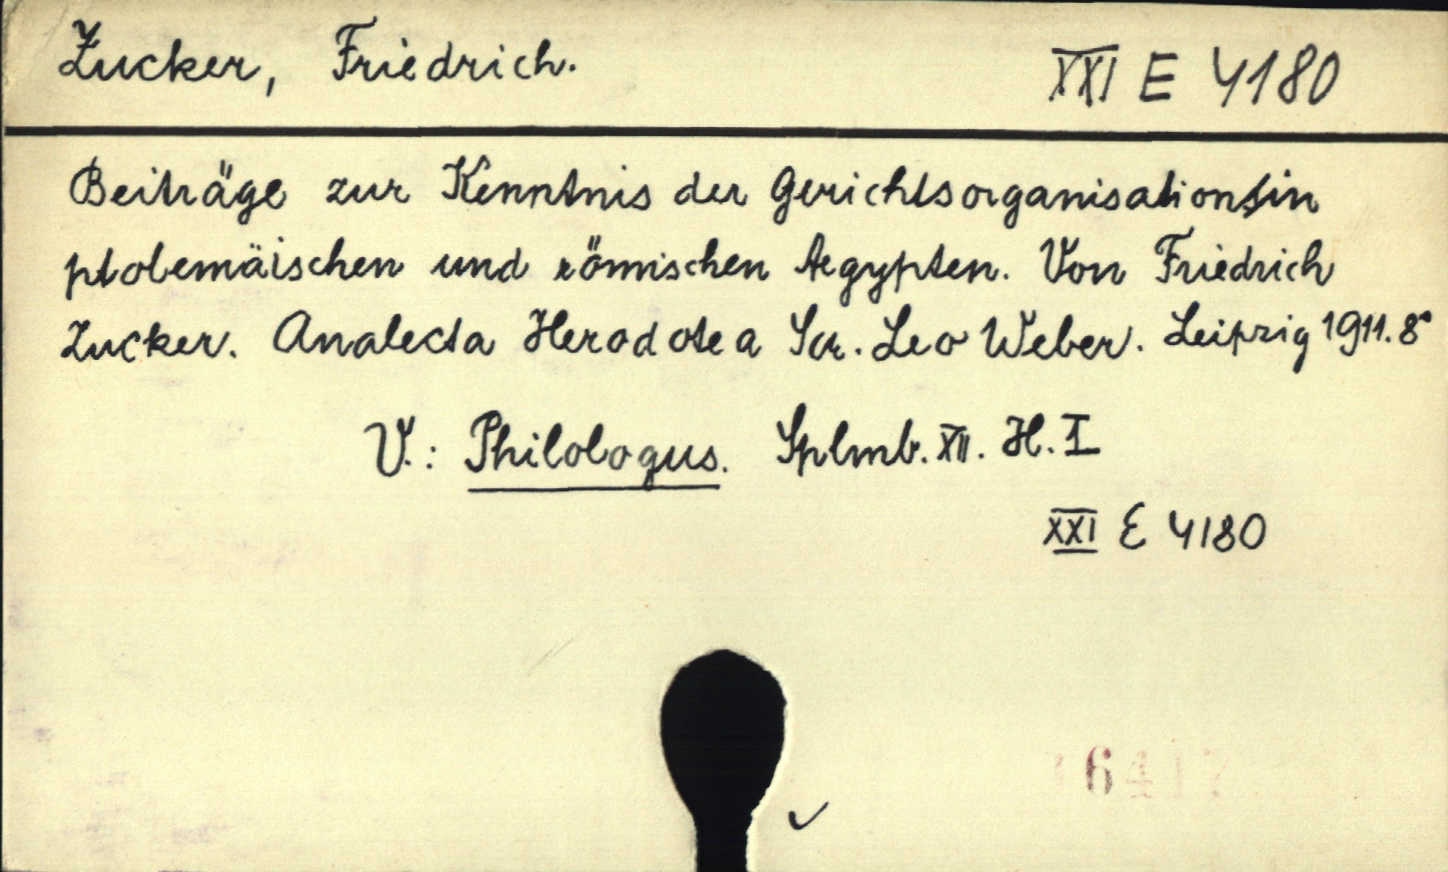 Zucker, Friedrich.
XXI E 4180
Beiträge zur Kenntnis der Gerichtsorganisation in
ptolemäischen und römischen Aegypten. Von Friedrich
Zucker. Analecta Herodotea Scr. Leo Weber. Leipzig 1911. 8°
V.: Philologus. Splmb. XII. H. I
XXI E 4180